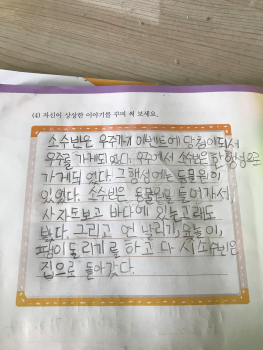 (4) 자신이 상상한 이야기를 꾸며 써 보세요.
소수반은 우주가기 이벤트에 당첨이 되서
우주를 가게 되었다. 우주에서 소수반은 한 행성으로
가게 되었다. 그 행성에는 동물원이
있었다. 소수반은 동물원을 들어가서
사자도 보고 바다에 있는 고래도
봤다. 그리고 연날리기, 윷놀이,
팽이 돌리기를 하고 다시 소수반은
집으로 돌아갔다.